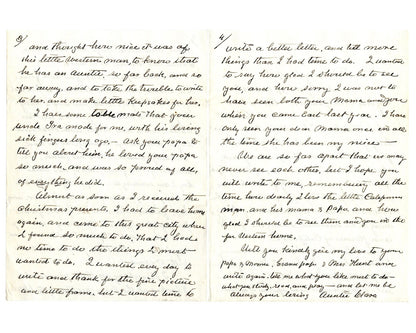 3/
and thought how nice it was of
this little Western man, to know that
he has an Auntie, so far back, and so
far away, and to take the trouble to write
to her and make little keepsakes for her.
I have some table mats that your
uncle Ira made for me, with his loving
sick fingers long ago. - Ask your papa to
tell you about him, he loved your papa
so much, and was so proud of all,
of everything he did.
Almost as soon as I received the
Christmas presents, I had to leave home
again, and come to this great city where
I found so much to do, that I had
no time to do the things I most
wanted to do. I wanted every day to
write and thank for the fine picture
and little frame. but I wanted time to
4/
write a better letter, and tell more
things than I had time to do. I wanted
to say how glad I should be to see
you, and how sorry I was not to
have seen both your Mama and you
when you came East last year. I have
only seen your dear Mama once in all
the time she has been my niece -
We are so far apart that we may
never see each other, but I hope you
will write to me, remembering all the
time how dearly I love the little California
man and his mama & Papa and how
glad I should be to see them and you in the
far Western home.
Will you kindly give my love to your
papa & Mama, Grand papa & Mrs Hunt and
write again. tell me what you like most to do -
what you study, read, and play - and let me be
always your loving Auntie Clara